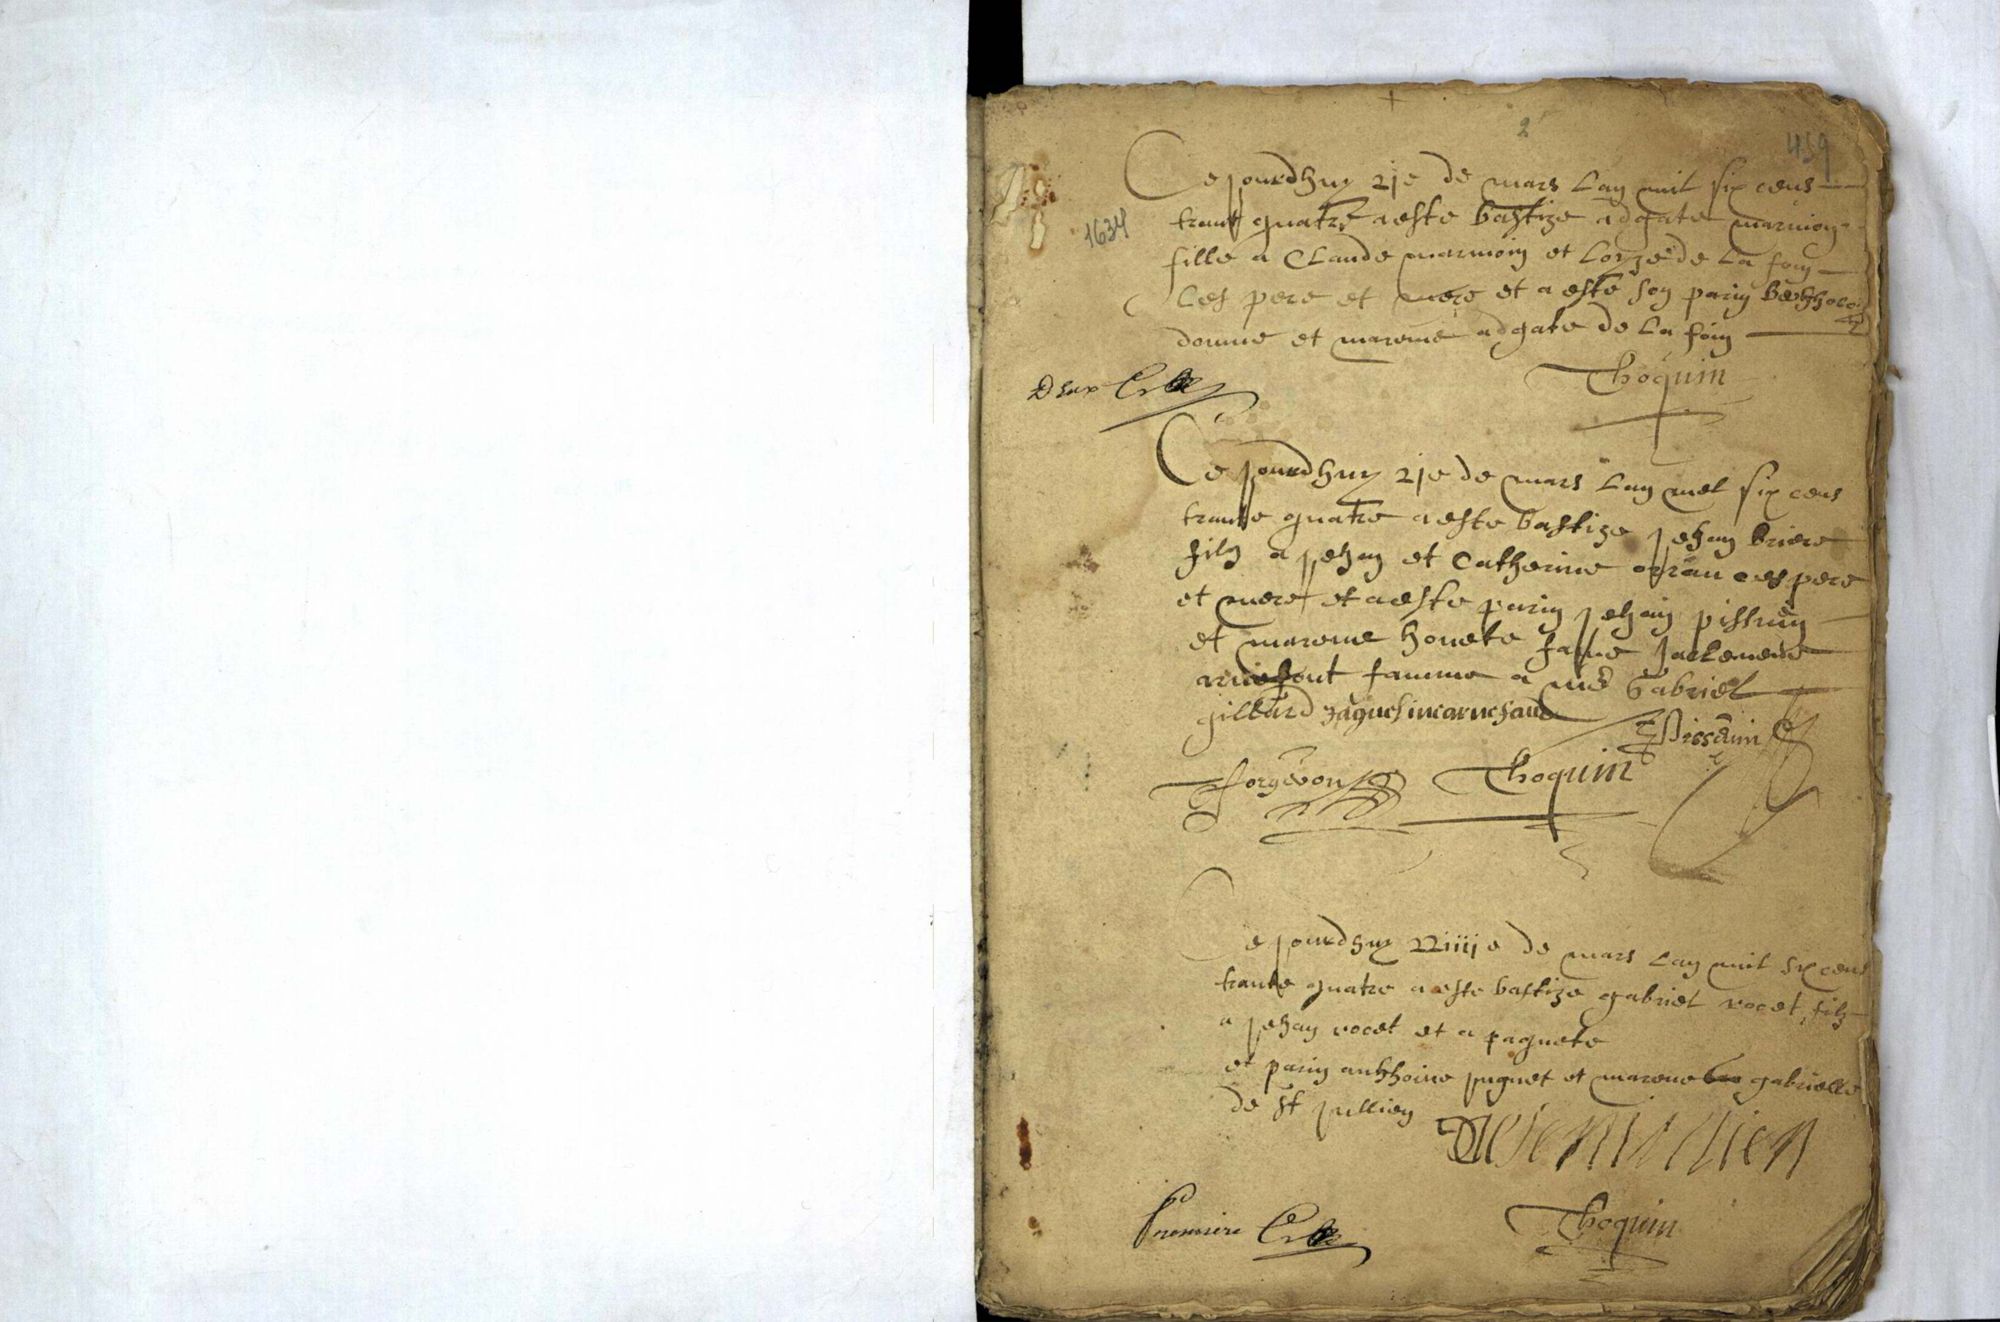 2
459
Ce jourdhuy 21e de mars lan mil six cens
1634
trante quatre a este bastize adgate marmoin
fille a Claude marmoin et Loyze de La foin
Les pere et mere et a este son parin
donne et mareine adgate de La foin
Thoquin
Ce jourdhuy 21e de mars lan mel six cens
trante quatre a este bastize jehan briere
filz a jehan et Catherine ces pere
et mere et a este parin jehan pissuin
et mareine honete
famme a me Gabriel
gillard
Thoquin
e jourdhuy 22iiije de mars lan mil six cens
trante quatre a este bastize gabriel rocet filz
a jehan rocet et a paquete
et parin anthhoine puguet et mareine gabrielle
de st jullien
Thoquin